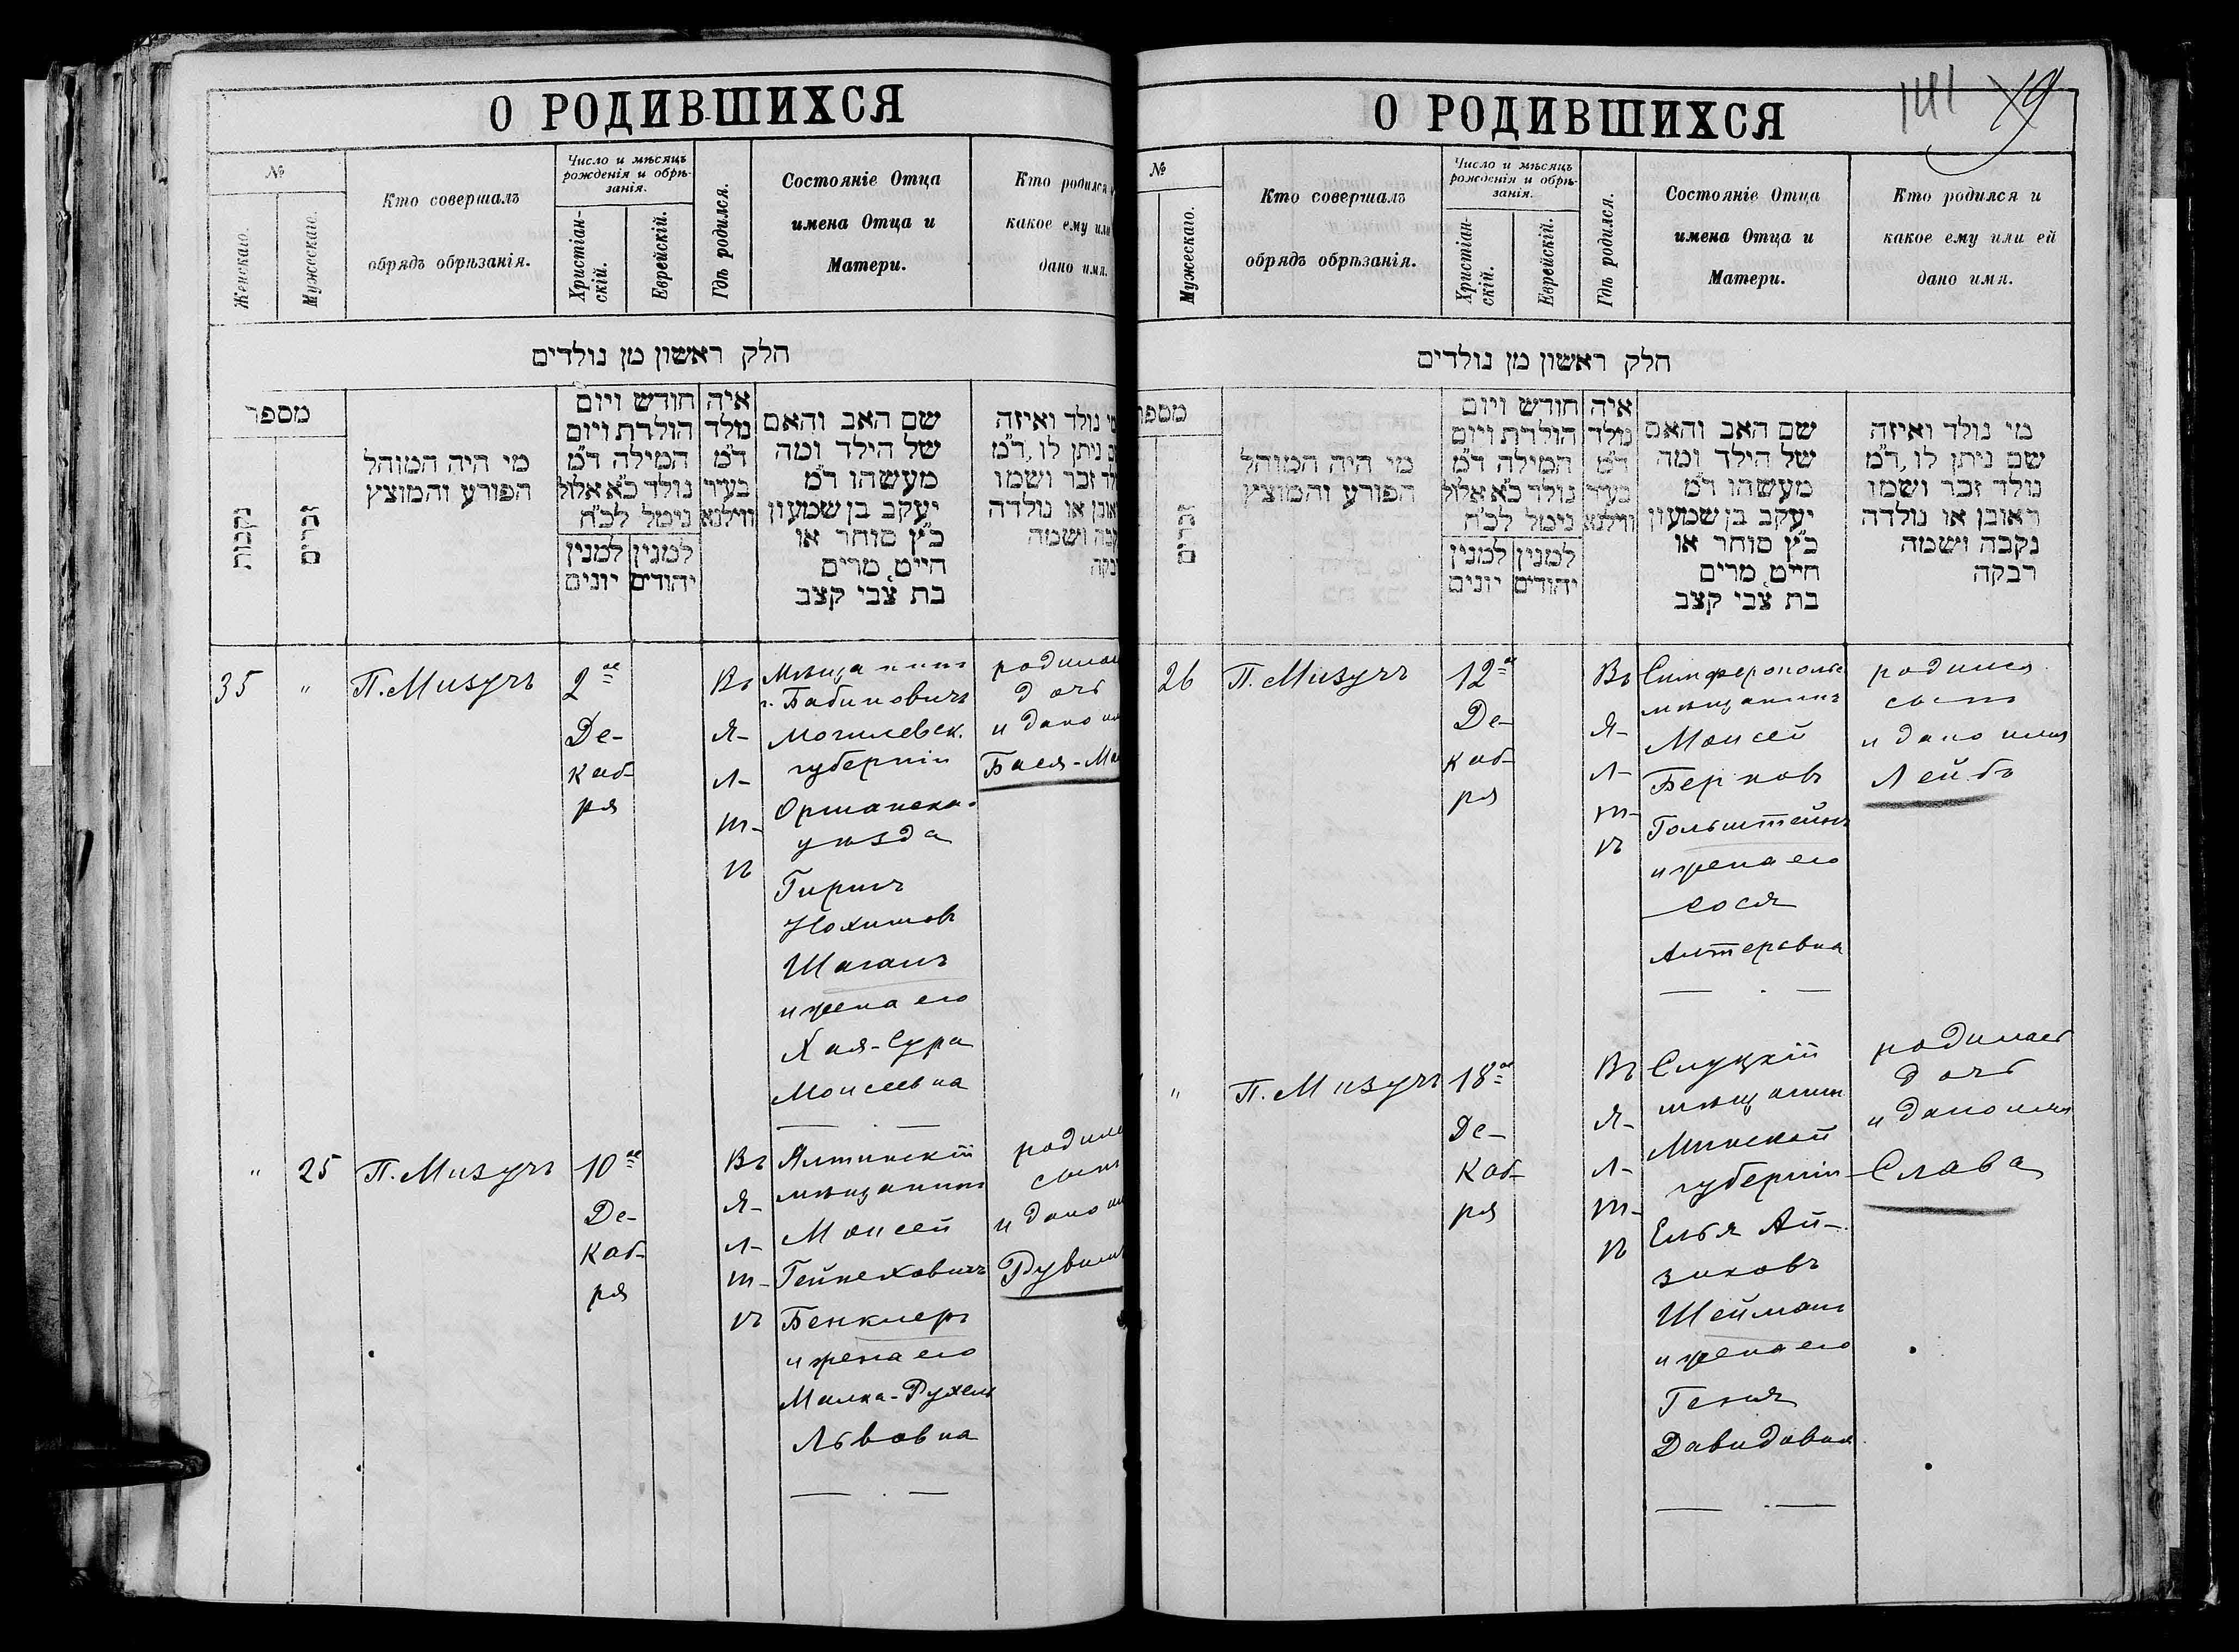 О РОДИВШИХСЯ
№
Женскаго.
Мужескаго.
Кто совершалъ
обрядъ обрѣзанія.
Число и мѣсяцъ
рожденія и обрѣ-
занія.
Христіан-
скій.
Еврейскій.
Гдѣ родился.
Состояніе Отца
имена Отца и
Матери.
Кто родился
какое ему или
дано имя.
חלק ראשון מן נולדים
מספר
נקבות
זכרים
מי היה המוהל
הפורע והמוצץ
חודש ויום
הולדת ויום
המילה ד"מ
נולד כ"א אלול
נימל לכ"ח
למנין
יונים
למנין
יהודים
איה
נולד
ד"מ
בעיר
ווילנא
שם האב והאם
של הילד ומה
מעשהו ד"מ
יעקב בן שמעון
כ"ץ סוחר או
חייט, מרים
בת צבי קצב
נולד ואיזה
ניתן לו, ד"מ
זכר ושמו
או נולדה
ושמה
35
"
П. Мизучъ
2ое
Де-
каб-
ря
Въ
Я-
л-
т-
ѣ
Мѣщанинъ
г. Бабиновичъ
Могилевск.
губерніи
Оршанска.
уѣзда
Гиршъ
Нохимовъ
Шаганъ
и жена его
Хая-Сура
Моисеевна
дочь
и дано
Бася-
"
25
П. Мизучъ
10ое
Де-
каб-
ря
Въ
Я-
л-
т-
ѣ
Ялтинскій
мѣщанинъ
Моисей
Гейнеховичъ
Бенклеръ
и жена его
Малка-Рухель
Львовна
сынъ
и дано
О РОДИВШИХСЯ
141
79
№
Мужескаго.
Кто совершалъ
обрядъ обрѣзанія.
Число и мѣсяцъ
рожденія и обрѣ-
занія.
Христіан-
скій.
Еврейскій.
Гдѣ родился.
Состояніе Отца
имена Отца и
Матери.
Кто родился и
какое ему или ей
дано имя.
חלק ראשון מן נולדים
זכרים
מי היה המוהל
הפורע והמוצץ
חודש ויום
הולדת ויום
המילה ד"מ
נולד כ"א אלול
נימל לכ"ח
למנין
יונים
למנין
יהודים
איה
נולד
ד"מ
בעיר
ווילנא
שם האב והאם
של הילד ומה
מעשהו ד"מ
יעקב בן שמעון
כ"ץ סוחר או
חייט, מרים
בת צבי קצב
מי נולד ואיזה
שם ניתן לו, ד"מ
נולד זכר ושמו
ראובן או נולדה
נקבה ושמה
רבקה
26
П. Мизучъ
12ое
Де-
каб-
ря
Въ
Я-
л-
т-
ѣ
мѣщанинъ
Моисей
Берковъ
Гольштейнъ
и жена его
Сося
Алтеровна
родился
сынъ
и дано имя
Лейбъ
"
П. Мизучъ
18ое
Де-
каб-
ря
Въ
Я-
л-
т-
ѣ
Слуцкій
мѣщанин
Минской
губерніи
Елья Ай-
зиковъ
Шейманъ
и жена его
Геня
Давидовна
родилась
дочь
и дано имя
Слава